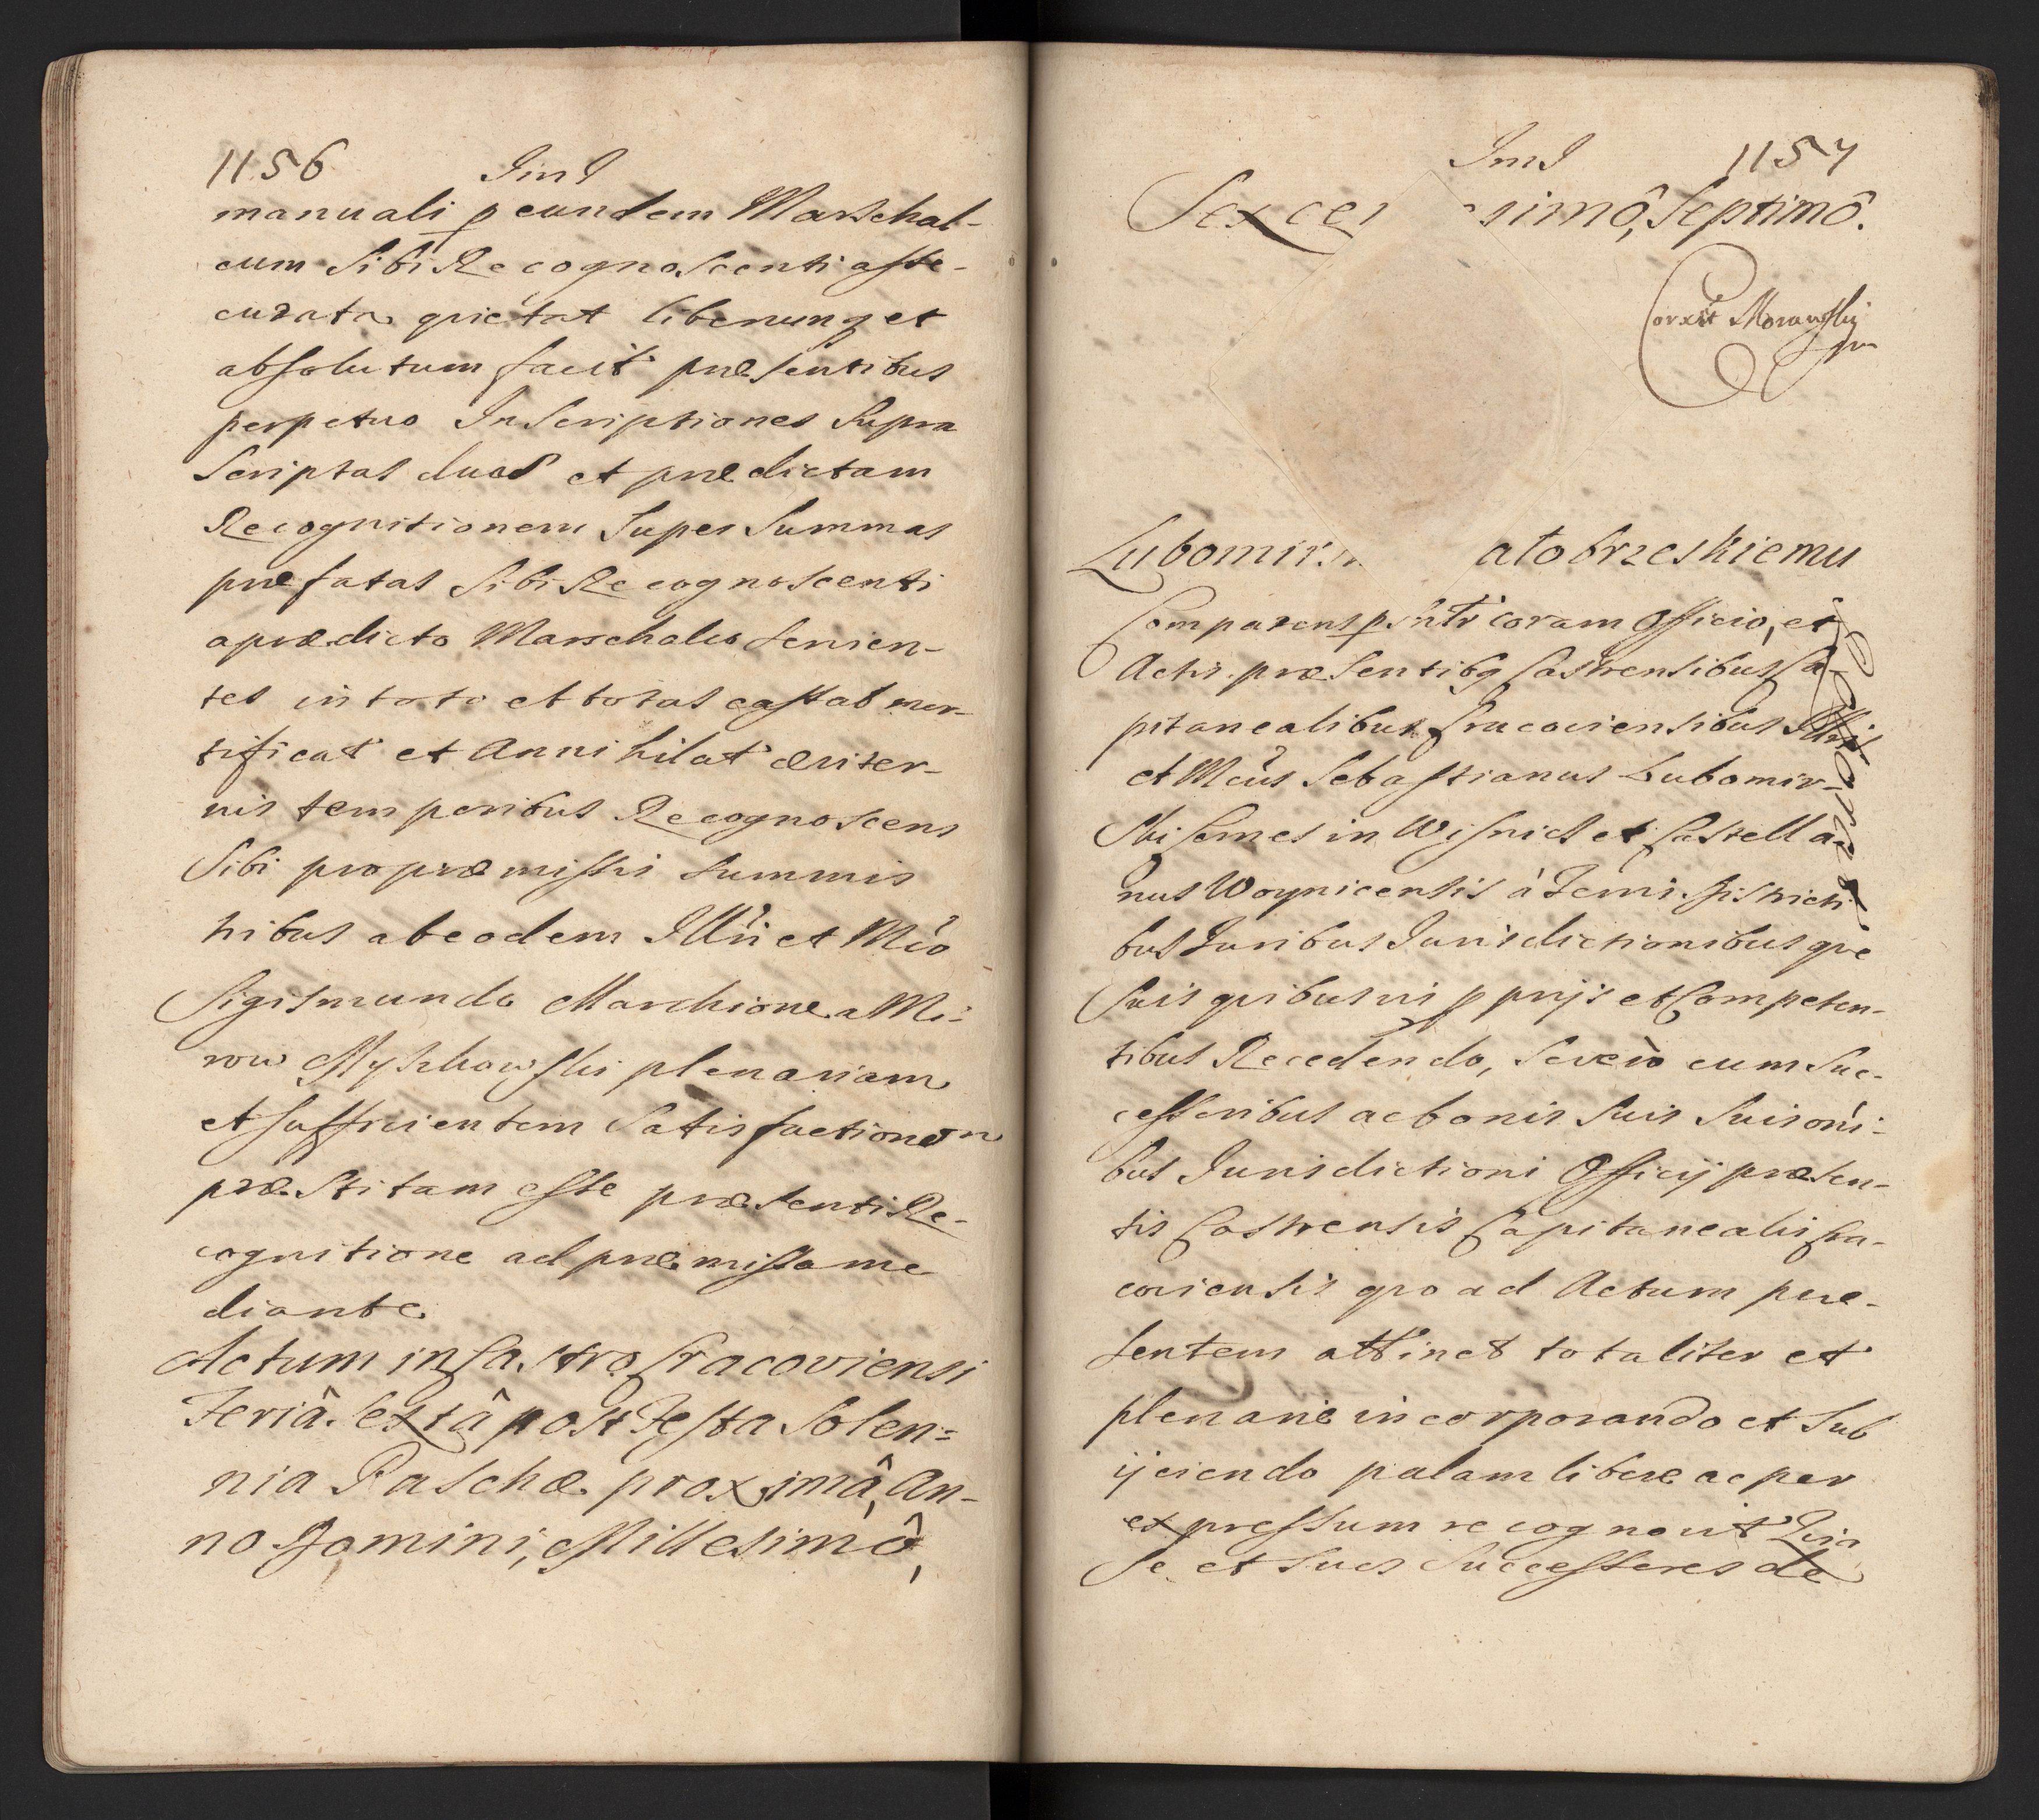 1156
manuali p eundem Marschal-
cum Sibi Recognoscenti asse-
curata quietat liberumq et
absolutum facit præsentibus
perpetuo Inscriptiones Supra
Scriptas duas et prædictam
Recognitionem Super Summas
præfatas Sibi Recognoscenti
a prædicto Marschalco servien-
tes in toto et totas cassat mor-
tificat et Annihilat æviter-
nis temporibus Recognoscens
Sibi pro præmissis Summis
tribus ab eodem Illri et Mco
Sigismundo Marchione a Mi-
row Myszkowski plenariam
et sufficientem Satisfactionem
præstitam esse præsenti Re-
cognitione ad præmissa me
diante
Actum in Castro Cracoviensi
Feriâ Sextâ post Festa Solen=
nia Paschæ proximâ, An-
no Domini, Millesimô,
1157
Sexcen simô, Septimô.
Correxit Morawski
mp
Lubomirs atobrzeskiemu
Comparens psntr coram Officio, et
Actis præsentibq Castrensibus Ca-
pitanealibus Cracoviensibus Illris
et Mcus Sebastianus Lubomir-
Ski Comes in Wisnicz et Castella-
nus Woynicensis à Terris Districti
bus Juribus Jurisdictionibusque
Suis quibusvis pprijs et Competen-
tibus Recedendo, Se vero cum Suc-
cessoribus ac bonis Suis Suis oni-
bus Jurisdictioni Officij præsen-
tis Castrensis Capitanealis Cra-
coviensis quo ad Actum præ-
sentem attinet totaliter et
plenarie incorporando et Sub
ijciendo palam libere ac per
expressum recognovit Quia
Se et Suos Successores de